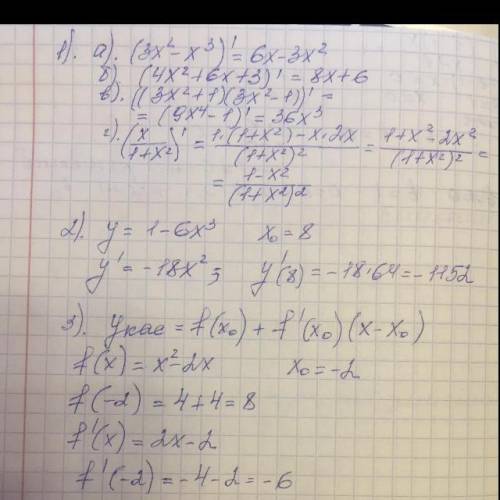 1). а). (3x² - x³)' = 6x - 3x²
б). (4x² + 6x + 3)' = 8x + 6
в). ((3x² + 1)(3x² - 1))' =
= (9x⁴ - 1)' = 36x³
г). (x/(1+x²))' = (1·(1+x²) - x·2x)/(1+x²)² = (1+x² - 2x²)/(1+x²)² =
= (1-x²)/(1+x²)²
2). y = 1 - 6x³ x₀ = 8
y' = -18x²; y'(8) = -18·64 = -1152
3). yкас = f(x₀) + f'(x₀)(x - x₀)
f(x) = x² - 2x x₀ = -2
f(-2) = 4 + 4 = 8
f'(x) = 2x - 2
f'(-2) = -4 - 2 = -6